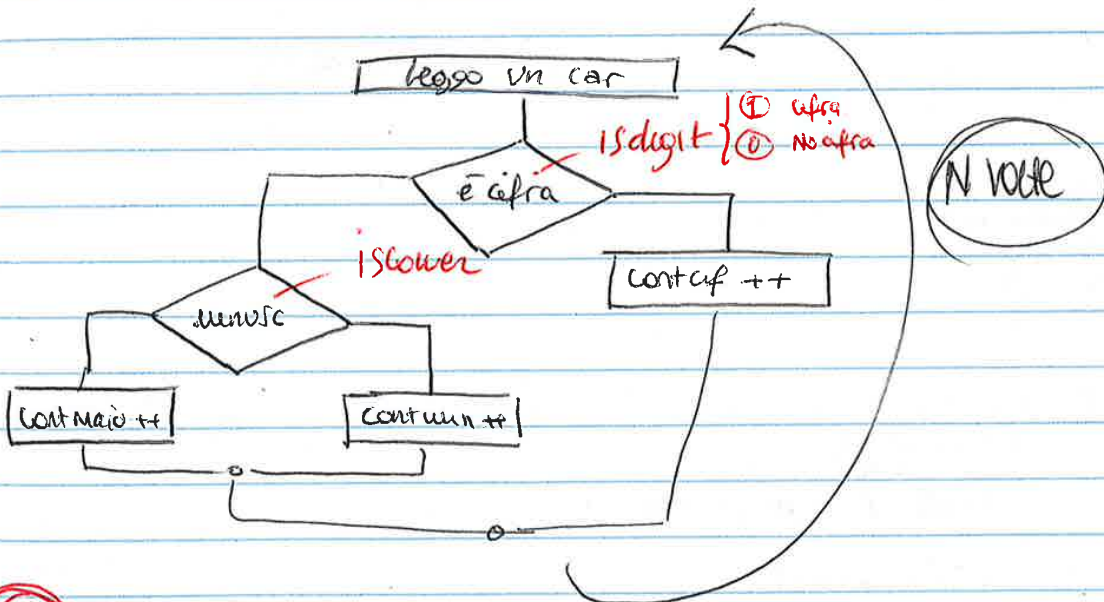 leggo un car
isdigit { ① cifra
⓪ No cifra
è cifra
N VOLTE
islower
contcif ++
minusc
contMaio ++
contmin ++